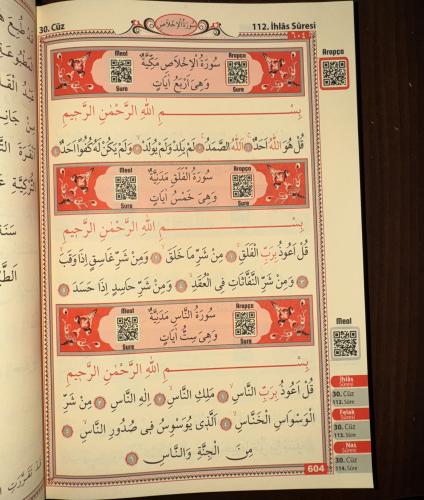 30. Cüz
سُورَةُ الْاِخْلَاصِ
112. İhlâs Sûresi
٦٠٤
Meal
Sure
سُورَةُ الْاِخْلَاصِ مَكِّيَّةٌ
وَهِىَ اَرْبَعُ اٰيَاتٍ
Arapça
Sure
Arapça
بِسْمِ اللّٰهِ الرَّحْمٰنِ الرَّحِيمِ
قُلْ هُوَ اللّٰهُ اَحَدٌ ١ اَللّٰهُ الصَّمَدُ ٢ لَمْ يَلِدْ وَلَمْ يُولَدْ ٣ وَلَمْ يَكُنْ لَهُ كُفُوًا اَحَدٌ ٤
Meal
Sure
سُورَةُ الْفَلَقِ مَدَنِيَّةٌ
وَهِىَ خَمْسُ اٰيَاتٍ
Arapça
Sure
بِسْمِ اللّٰهِ الرَّحْمٰنِ الرَّحِيمِ
قُلْ اَعُوذُ بِرَبِّ الْفَلَقِ ١ مِنْ شَرِّ مَا خَلَقَ ٢ وَمِنْ شَرِّ غَاسِقٍ اِذَا وَقَبَ
٣ وَمِنْ شَرِّ النَّفَّاثَاتِ فِى الْعُقَدِ ٤ وَمِنْ شَرِّ حَاسِدٍ اِذَا حَسَدَ ٥
Meal
Sure
سُورَةُ النَّاسِ مَدَنِيَّةٌ
وَهِىَ سِتُّ اٰيَاتٍ
Arapça
Sure
Meal
بِسْمِ اللّٰهِ الرَّحْمٰنِ الرَّحِيمِ
قُلْ اَعُوذُ بِرَبِّ النَّاسِ ١ مَلِكِ النَّاسِ ٢ اِلٰهِ النَّاسِ ٣ مِنْ شَرِّ
الْوَسْوَاسِ الْخَنَّاسِ ٤ اَلَّذِى يُوَسْوِسُ فِى صُدُورِ النَّاسِ ٥
مِنَ الْجِنَّةِ وَالنَّاسِ ٦
İhlâs
Sûresi
30. Cüz
112. Sûre
Felak
Sûresi
30. Cüz
113. Sûre
Nas
Sûresi
30. Cüz
114. Sûre
604